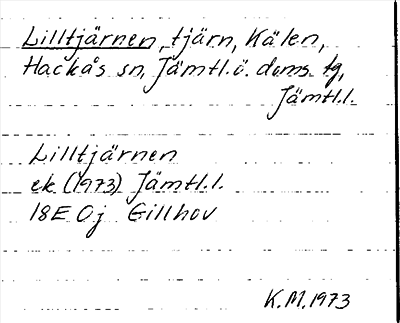 Lilltjärnen, tjärn, Kälen,
Hackås sn, Jämtl.ö. doms. tg,
Jämtl.l.
Lilltjärnen
ek (1973) Jämtl.l.
18E 0j Gillhov
K.M.1973